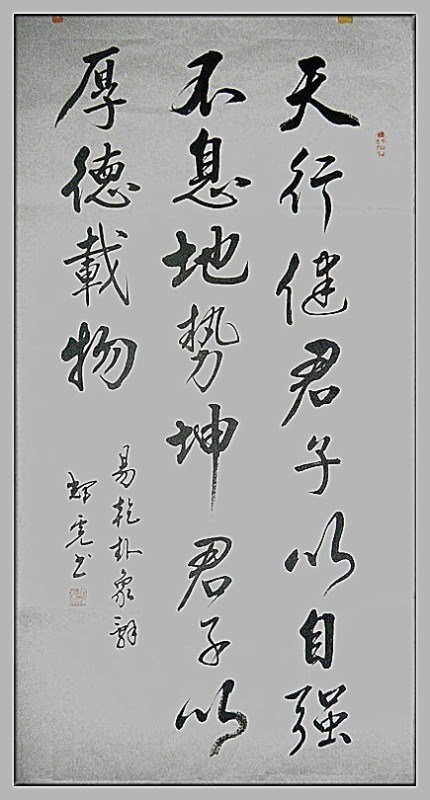 天行健君子以自强
不息地势坤君子以
厚德載物
易乾卦象辭
輝雲书